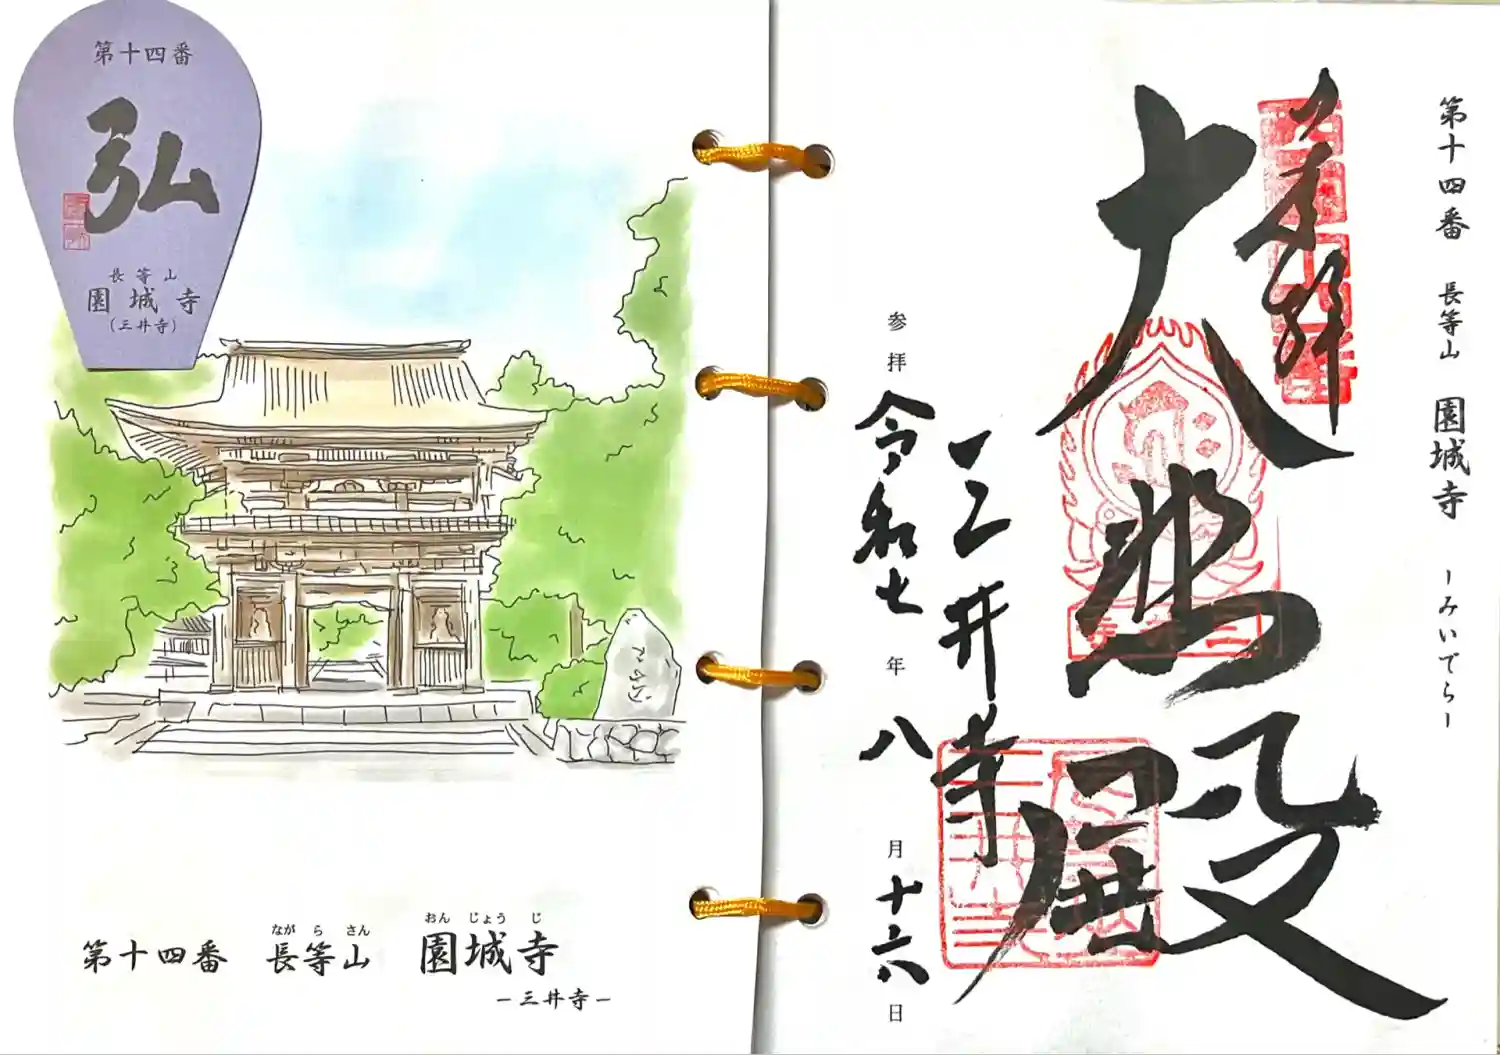 第十四番
弘
長等山
園城寺
(三井寺)
ながらさん おんじょうじ
第十四番 長等山 園城寺
ー三井寺ー
第十四番 長等山 園城寺 ーみいでらー
奉拝
大悲殿
三井寺
参拝 令和七年八月十六日